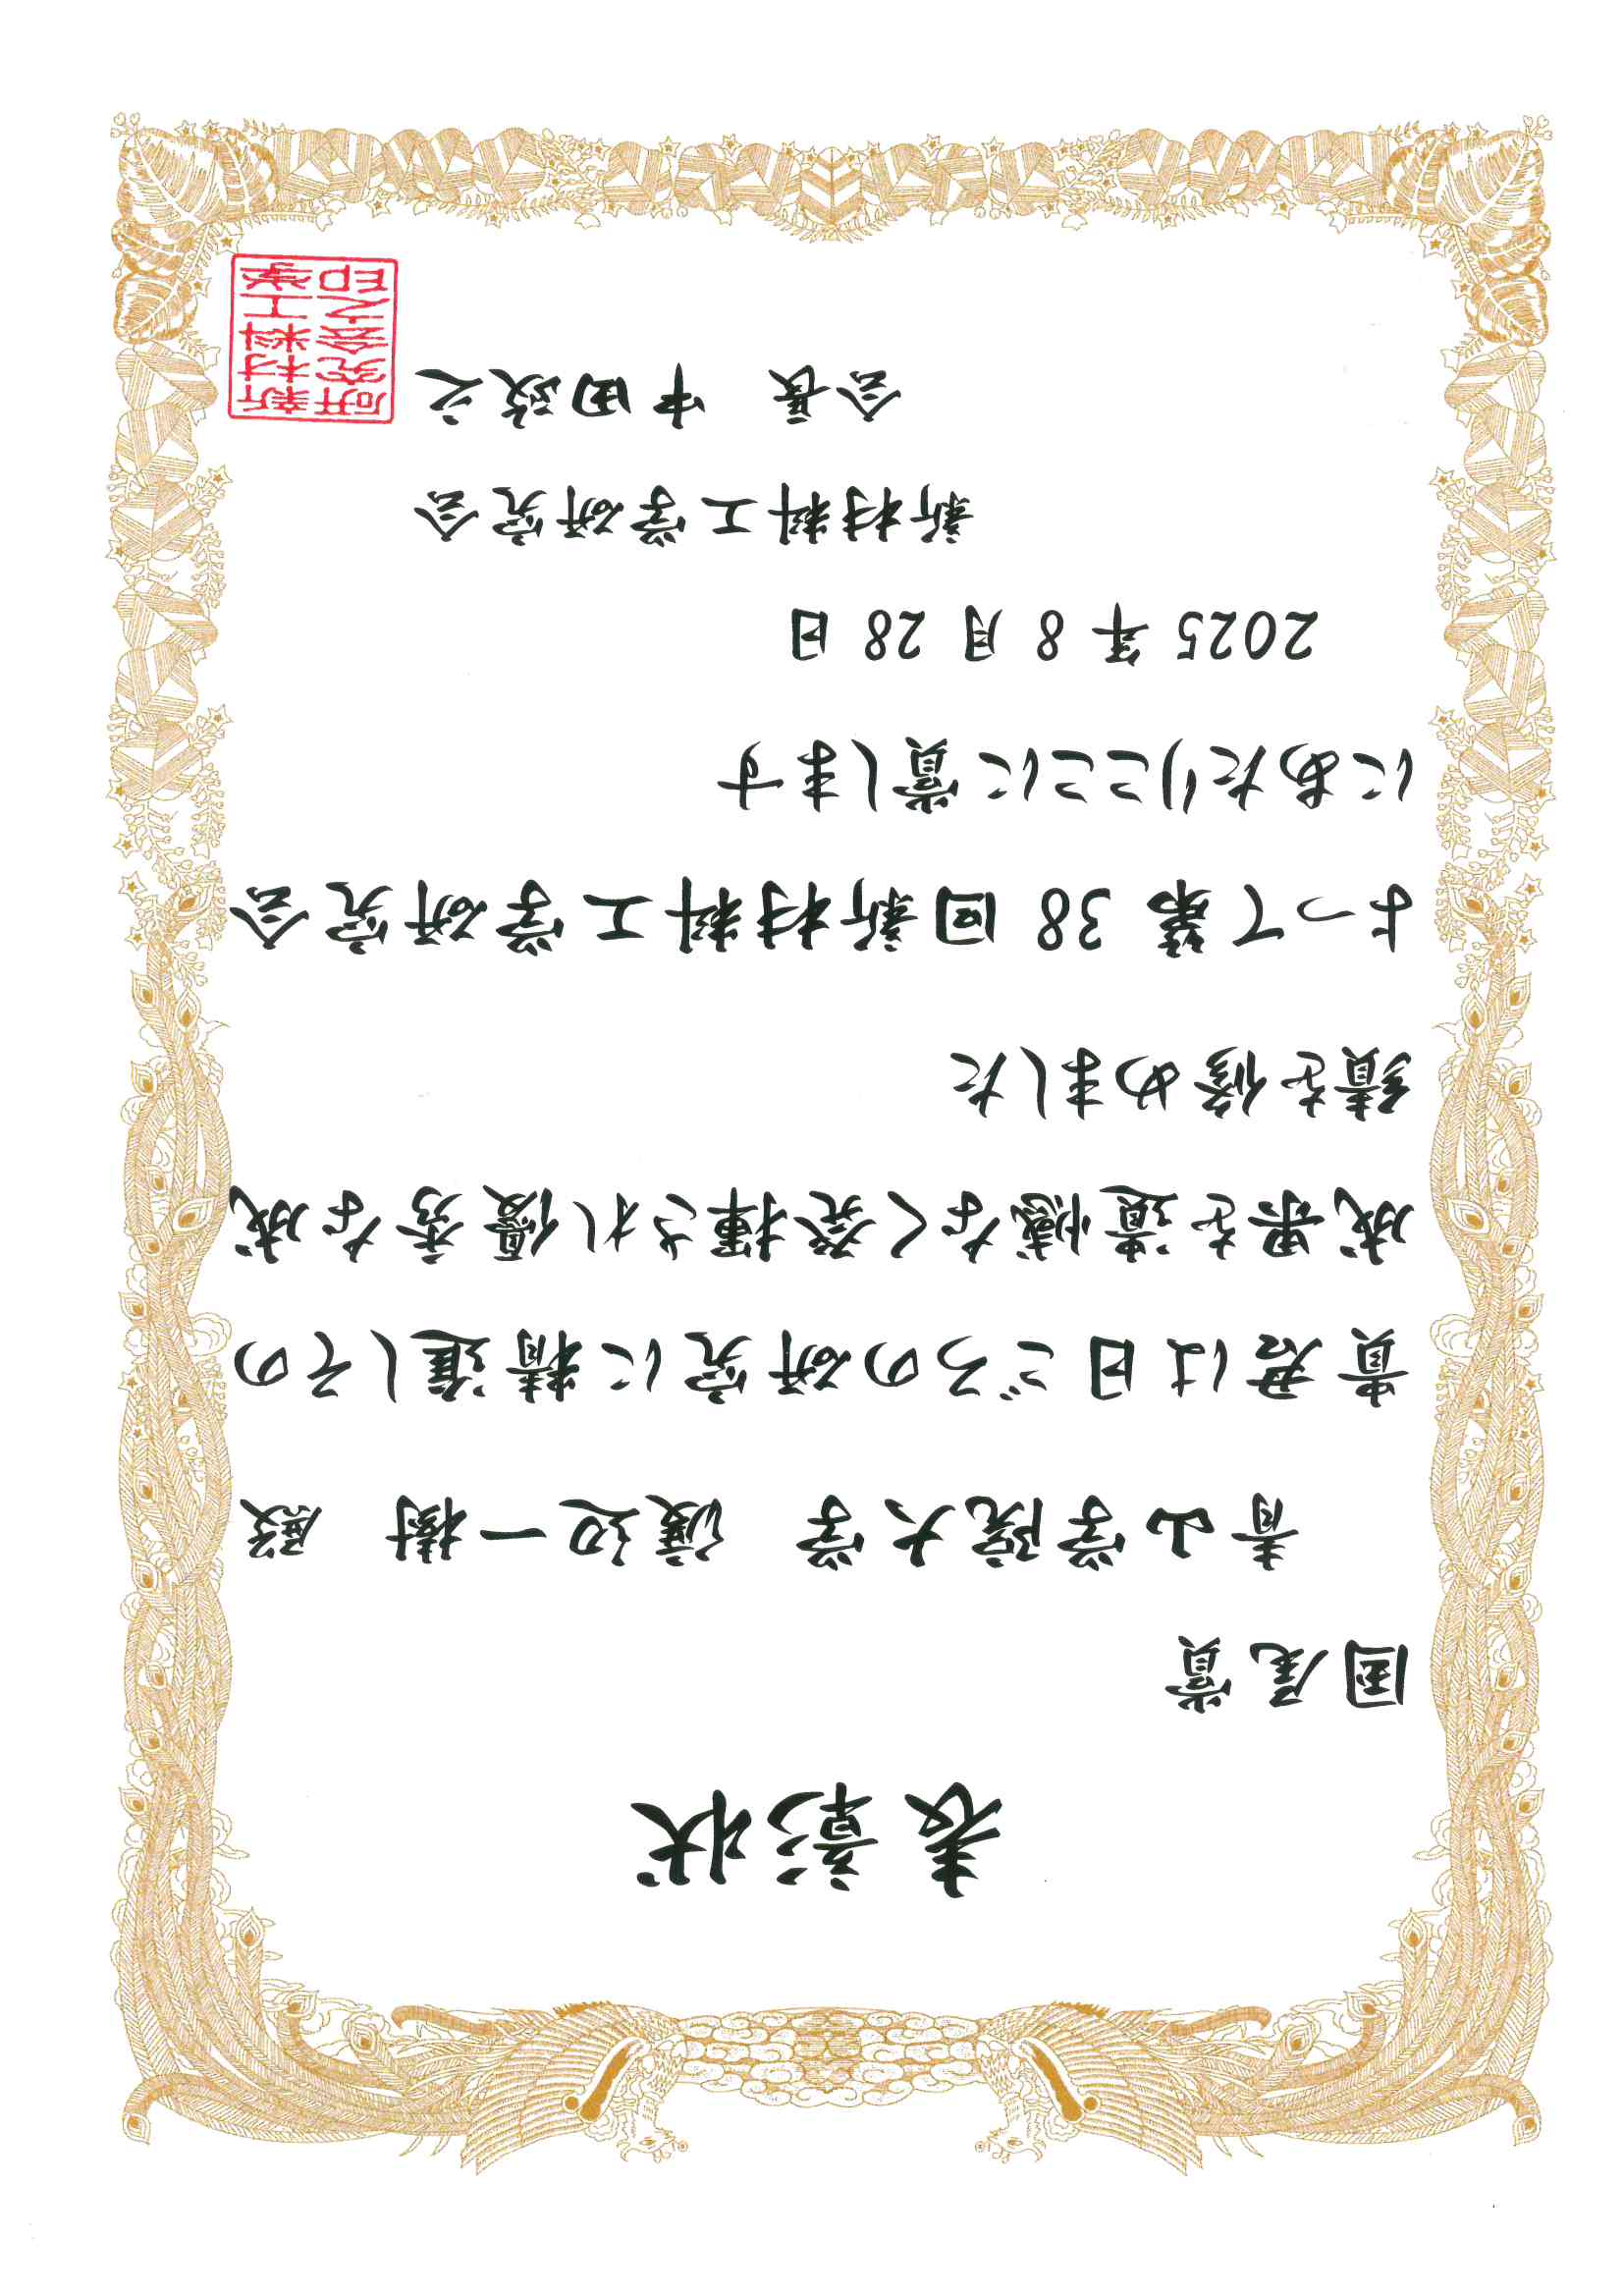 表彰状
国尾賞
青山学院大学　渡辺一樹　殿
貴君は日ごろの研究に精進しその
成果を遺憾なく発揮され優秀な成
績を修めました
よって第38回新材料工学研究会
にあたりここに賞します
2025年8月28日
新材料工学研究会
会長　中田政之
新材料工学
研究会之印